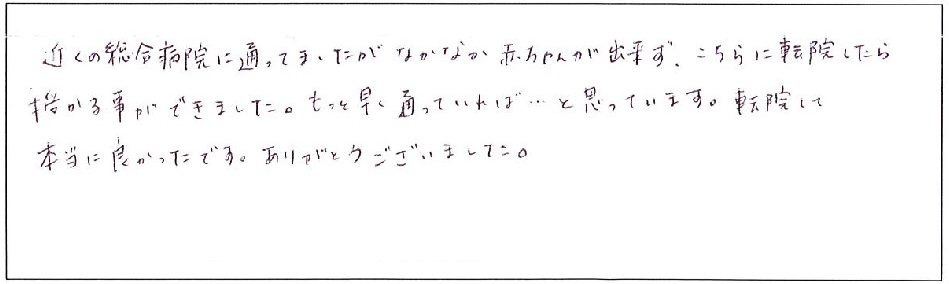 近くの総合病院に通ってましたがなかなか赤ちゃんが出来ず、こちらに転院したら
授かる事ができました。もっと早く通っていれば…と思っています。転院して
本当に良かったです。ありがとうございました。